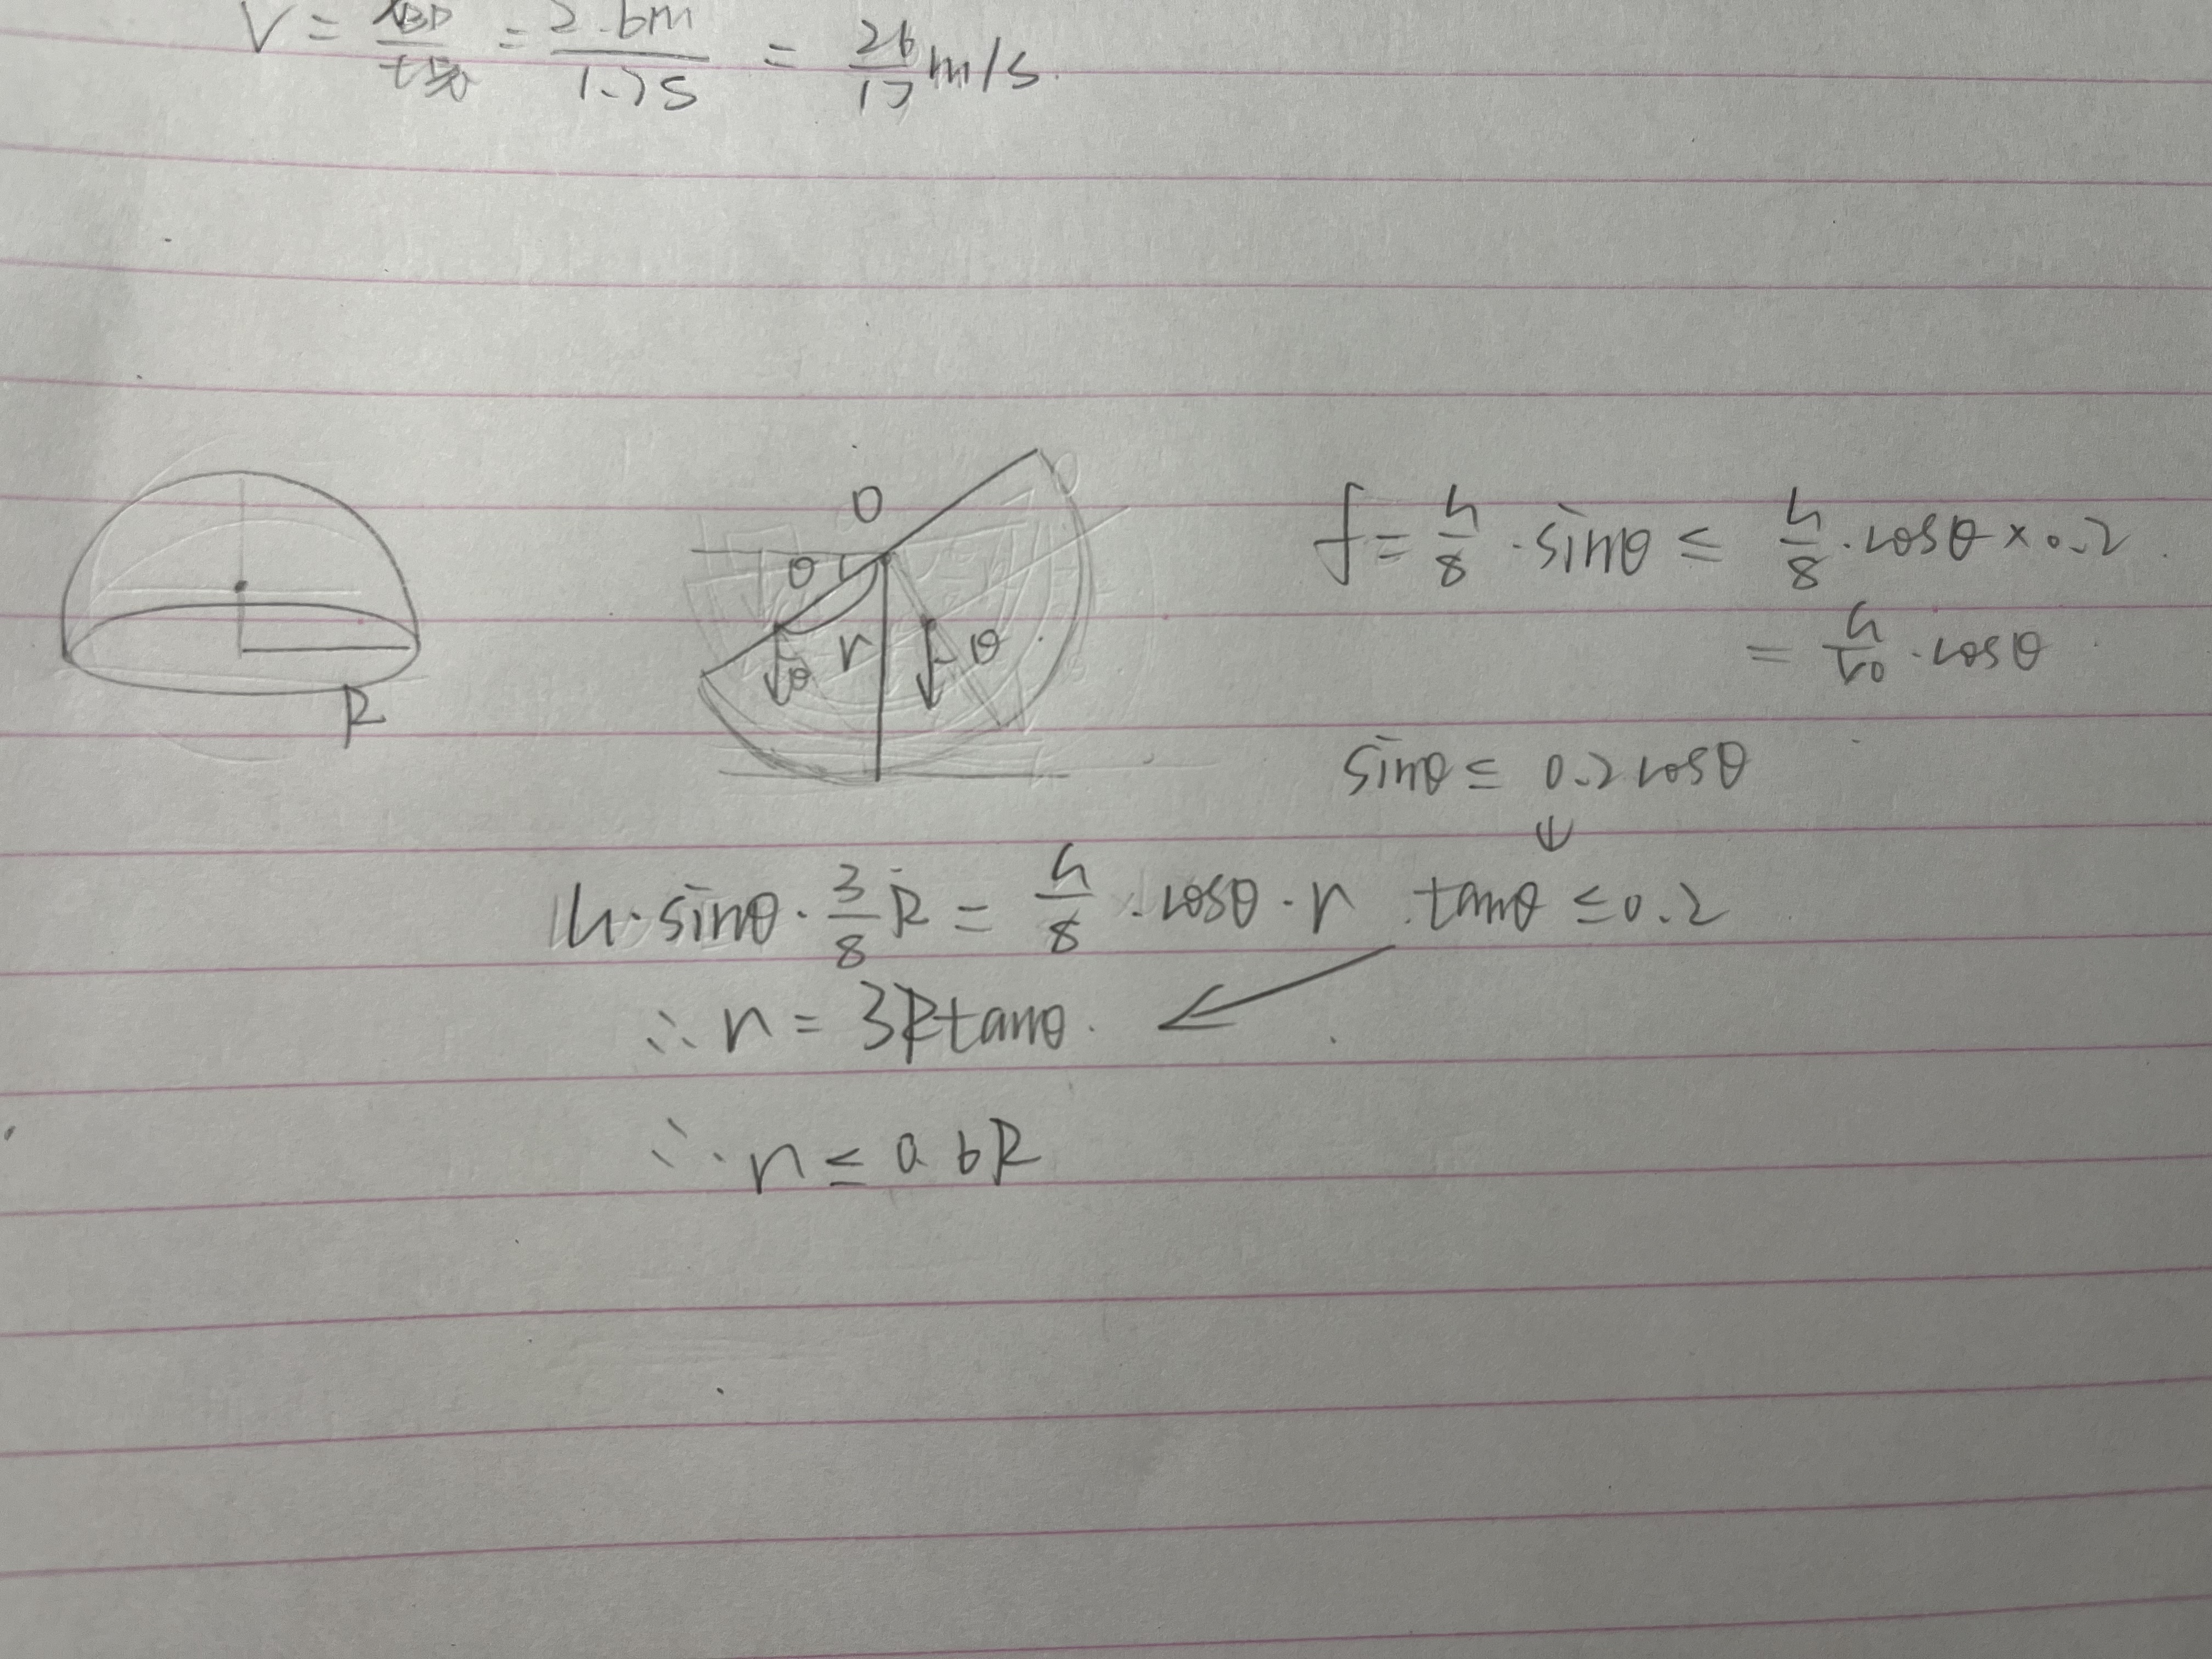 V = / t = 2.6m / 1.7s = 26/17 m/s.
O
θ
θ
r
θ
R
f = G/8 · sinθ ≤ G/8 · cosθ × 0.2
= G/40 · cosθ
sinθ ≤ 0.2cosθ
↓
G · sinθ · 3/8 R = G/8 · cosθ · r
tanθ ≤ 0.2
∴ r = 3Rtanθ.
∴ r ≤ 0.6R